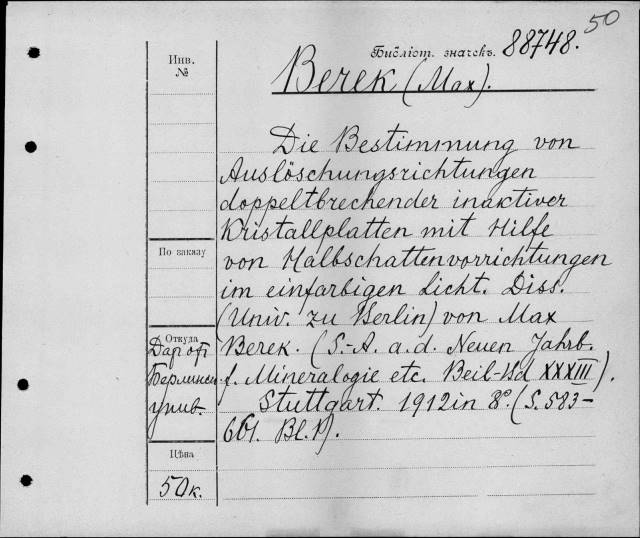 50
Библіот. значекъ. 88748.
Инв.
№
Berek (Max).
Die Bestimmung von
Auslöschungsrichtungen
doppeltbrechender inaktiver
Kristallplatten mit Hilfe
von Halbschattenvorrichtungen
im einfarbigen Licht. Diss.
(Univ. zu Berlin) von Max
Berek. (S.-A. a. d. Neuen Jahrb.
f. Mineralogie etc. Beil-Bd XXXIII).
Stuttgart. 1912 in 8°. (S. 583–
661. Bl. P).
По заказу
Откуда
Дар от
Берлинск.
унив.
Цѣна
50к.